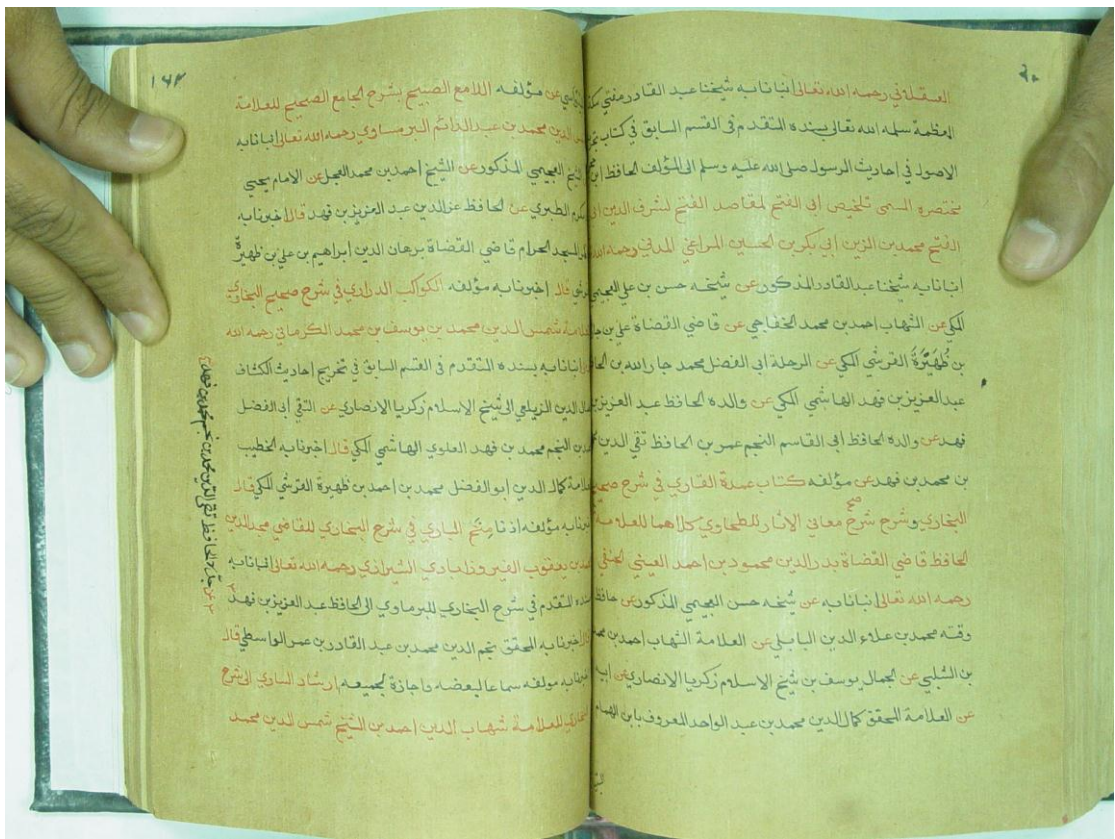 العسقلاني رحمه الله تعالى انبانا به شيخنا عبد القادر مفتي مكة
المعظمة سلمه الله تعالى بسنده المتقدم في القسم السابق في كتاب
الاصول في احاديث الرسول صلى الله عليه وسلم الى المؤلف الحافظ ابن
مختصره المسمى تلخيص ابى الفتح لمقاصد الفتح لشرف الدين ابى
الفتح محمد بن الزين ابي بكر بن الحسين المراغي المدني رحمه الله
انبانا به شيخنا عبد القادر المذكور عن شيخه حسن بن علي العجيمي
المكي عن الشهاب احمد بن محمد الخفاجي عن قاضي القضاة علي بن جار
بن ظُهَيْرَةَ القرشي المكي عن الرحلة ابى الفضل محمد جار الله بن الحافظ
عبد العزيز بن فهد الهاشمي المكي عن والده الحافظ عبد العزيز بن
فهد عن والده الحافظ ابى القاسم النجم عمر بن الحافظ تقي الدين
بن محمد بن فهد عن مؤلفه كتاب عمدة القاري في شرح صحيح
البخاري وشرح شرح صح معاني الاثار للطحاوي كلاهما للعلامة
الحافظ قاضي القضاة بدر الدين محمود بن احمد العيني الحنفي
رحمه الله تعالى انبانا به عن شيخه حسن العجيمي المذكور عن حافظ
وقته محمد بن علاء الدين البابلي عن العلامة الشهاب احمد بن محمد
بن الشلبي عن الجمال يوسف بن شيخ الاسلام زكريا الانصاري عن ابيه
عن العلامة المحقق كمال الدين محمد بن عبد الواحد المعروف بابن الهمام
١٦٢
عن مؤلفه اللامع الصبيح بشرح الجامع الصحيح للعلامة
الدين محمد بن عبد الدائم البرماوي رحمه الله تعالى انبانا به
الشيخ العجيمي المذكور عن الشيخ احمد بن محمد العجل عن الامام يحيى
مكرم الطبري عن الحافظ عز الدين عبد العزيز بن فهد قال اخبرنا به
المسجد الحرام قاضي القضاة برهان الدين ابراهيم بن علي بن ظهيرة
قال اخبرنا به مؤلفه الكواكب الدراري في شرح صحيح البخاري
للعلامة شمس الدين محمد بن يوسف بن محمد الكرماني رحمه الله
انبانا به بسنده المتقدم في القسم السابق في تخريج احاديث الكشاف
جمال الدين الزيلعي الى شيخ الاسلام زكريا الانصاري عن التقي ابى الفضل
بن النجم محمد بن فهد العلوي الهاشمي المكي قال اخبرنا به الخطيب
العلامة كمال الدين ابو الفضل محمد بن احمد بن ظهيرة القرشي المكي قال
اخبرنا به مؤلفه اذنا منح الباري في شرح البخاري للقاضي مجد الدين
محمد بن يعقوب الفيروزابادي الشيرازي رحمه الله تعالى انبانا به
بسنده المتقدم في شرح البخاري للبرماوي الى الحافظ عبد العزيز بن فهد
قال اخبرنا به المحقق نجم الدين محمد بن عبد القادر بن عمر الواسطي قال
اخبرنا به مولفه سماعا لبعضه واجازة لجميعه ارشاد الساري الى شرح
البخاري للعلامة شهاب الدين احمد بن الشيخ شمس الدين محمد
عن جده الحافظ تقي الدين محمد بن نجم محمد بن فهد